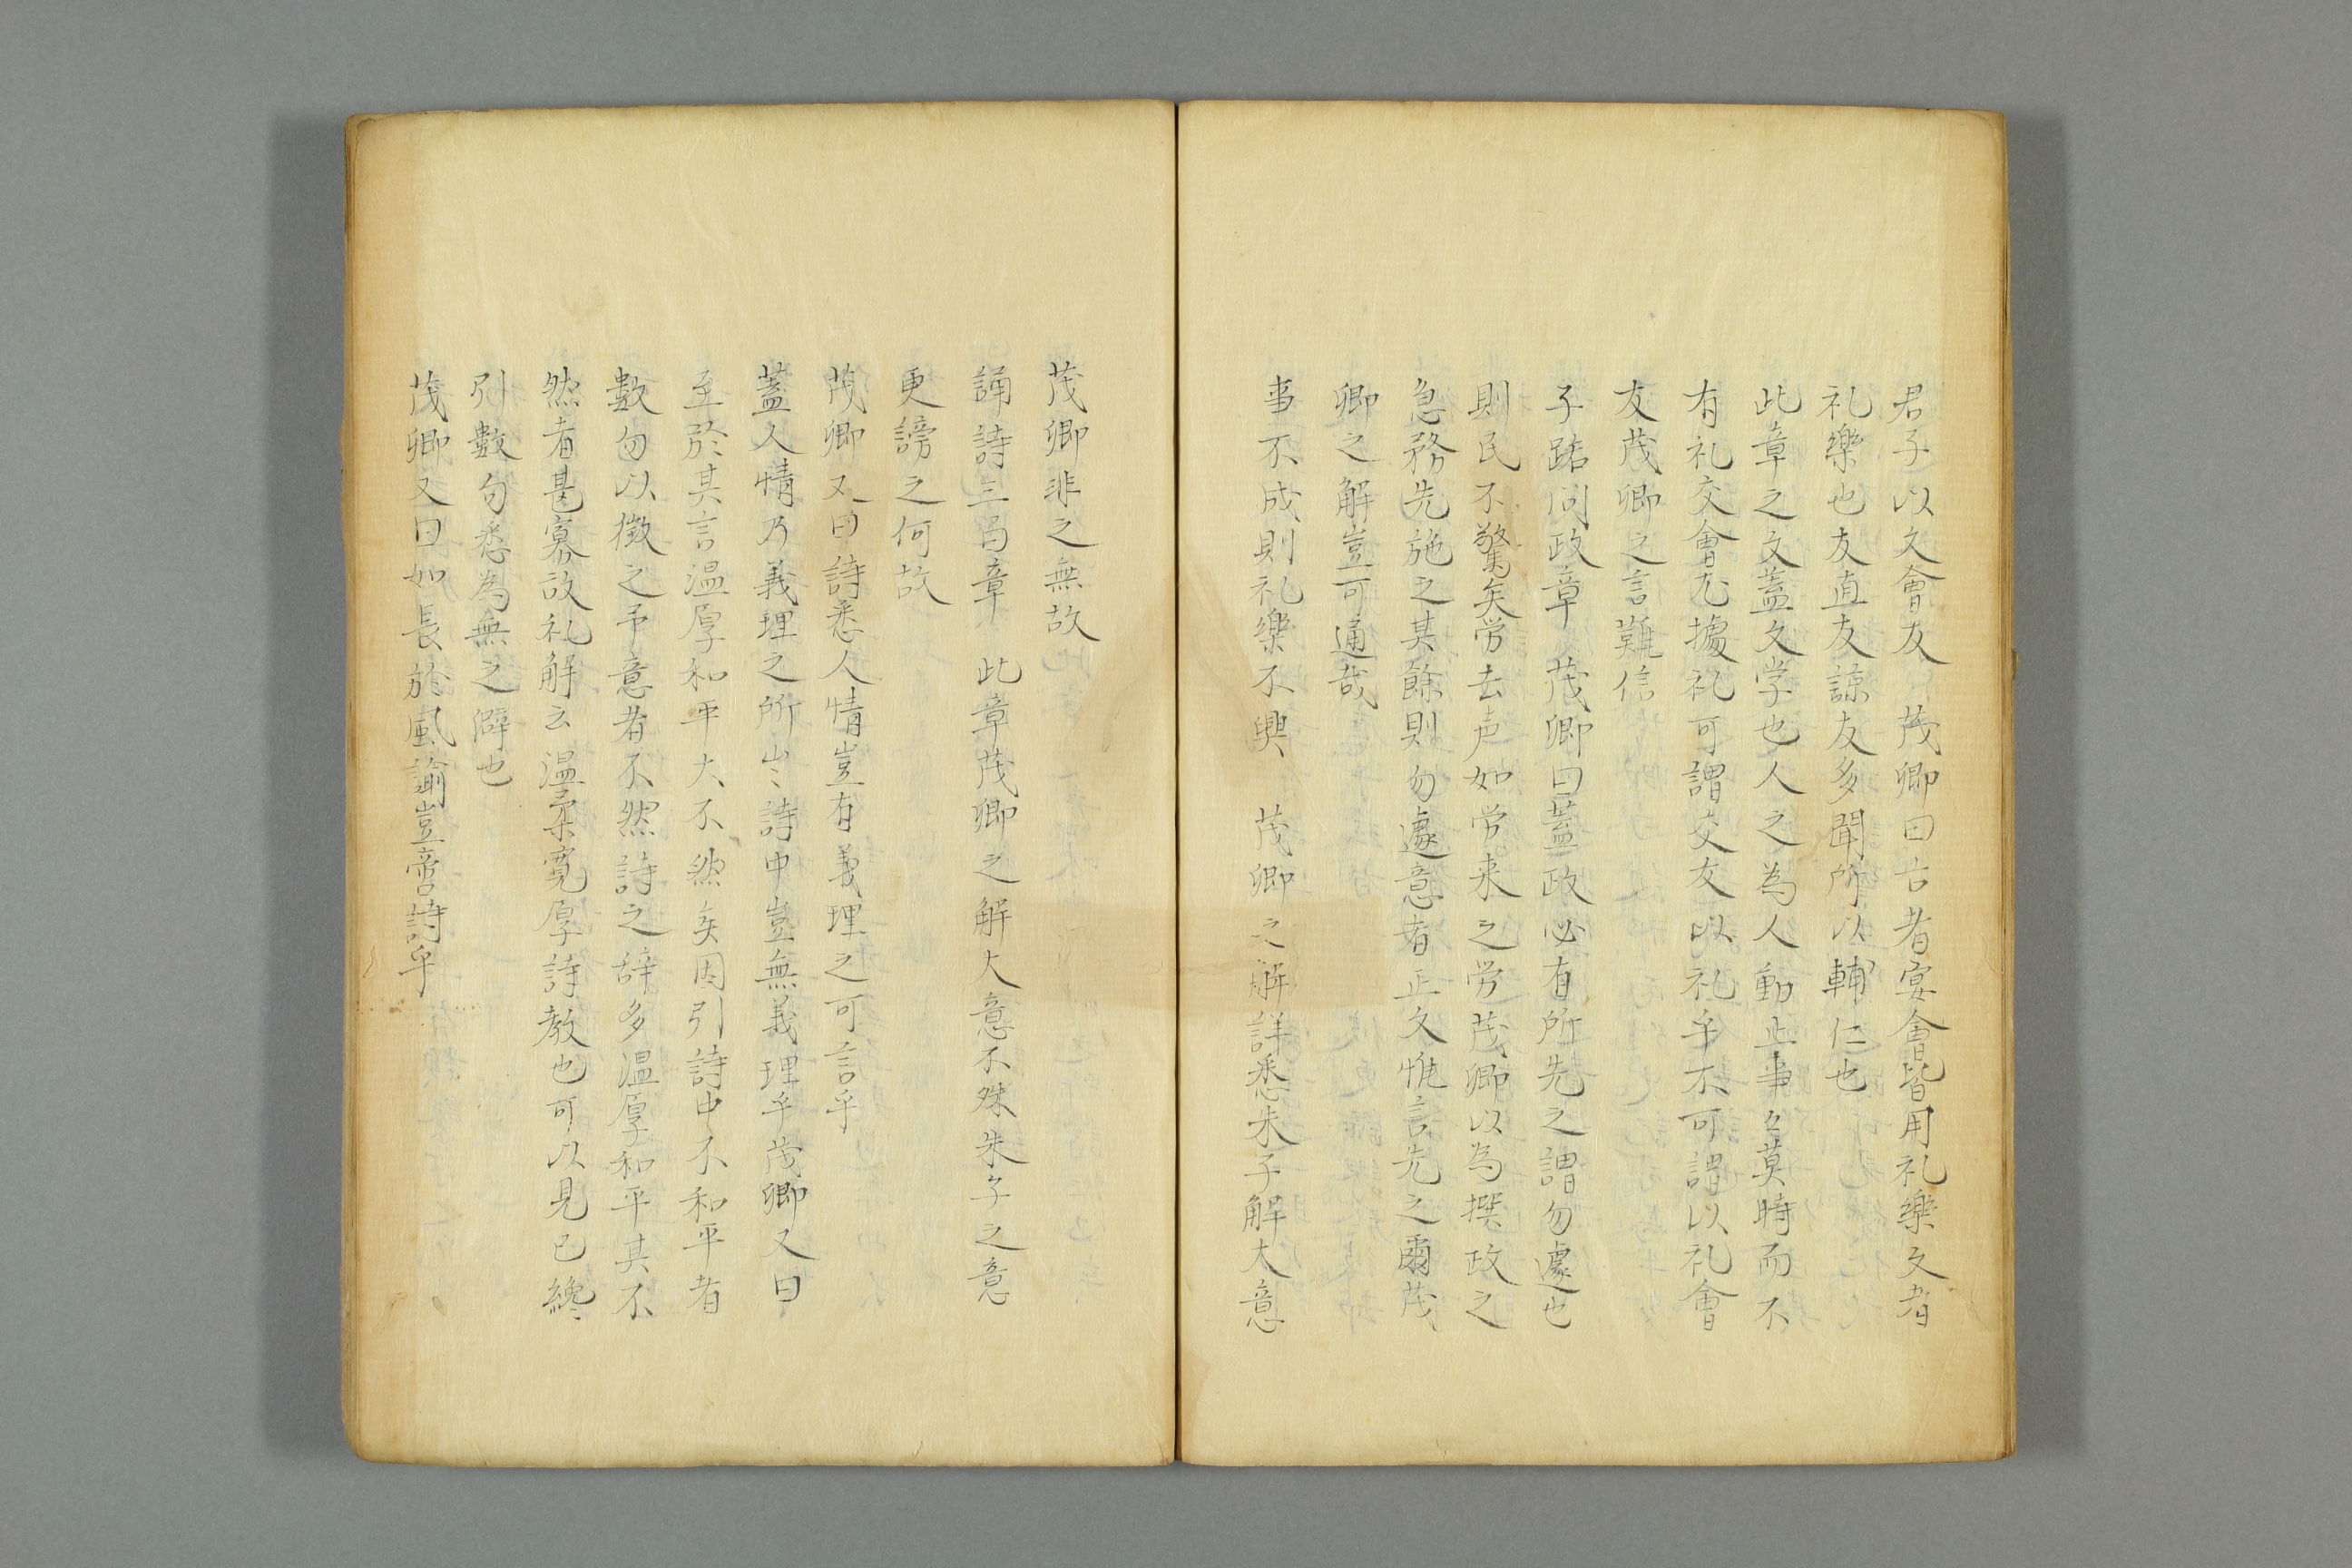 君子以文會友　茂卿曰古者宴會皆用礼樂文者
礼樂也友直友諒友多聞所以輔仁也
此章之文蓋文学也人之為人動止事々莫時而不
有礼交會尤據礼可謂交友以礼乎不可謂以礼會
友茂卿之言難信
子路問政章　茂卿曰蓋政必有所先之謂勿遽也
則民不驚矣労去声如労来之労茂卿以為撰政之
急務先施之其餘則勿遽意者正文惟言先之爾茂
卿之解豈可通哉
事不成則礼樂不興　茂卿之解詳悉朱子解大意
茂卿非之無故
誦詩三百章　此章茂卿之解大意不殊朱子之意
更謗之何故
茂卿又曰詩悉人情豈有義理之可言乎
蓋人情乃義理之所出詩中豈無義理乎茂卿又曰
至於其言温厚和平大不然矣因引詩中不和平者
數句以徵之予意者不然詩之辞多温厚和平其不
然者甚寡故礼解云温柔寛厚詩教也可以見已纔
引數句悉為無之僻也
茂卿又曰如長於風諭豈啻詩乎